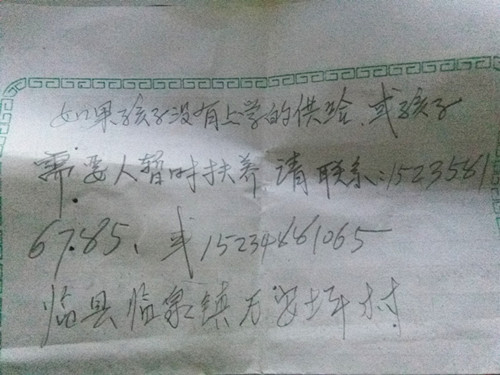 如果孩子没有上学的供给、或孩子
需要人暂时扶养 请联系:1523581
6785、或15234461065
临县临泉镇万安坪村